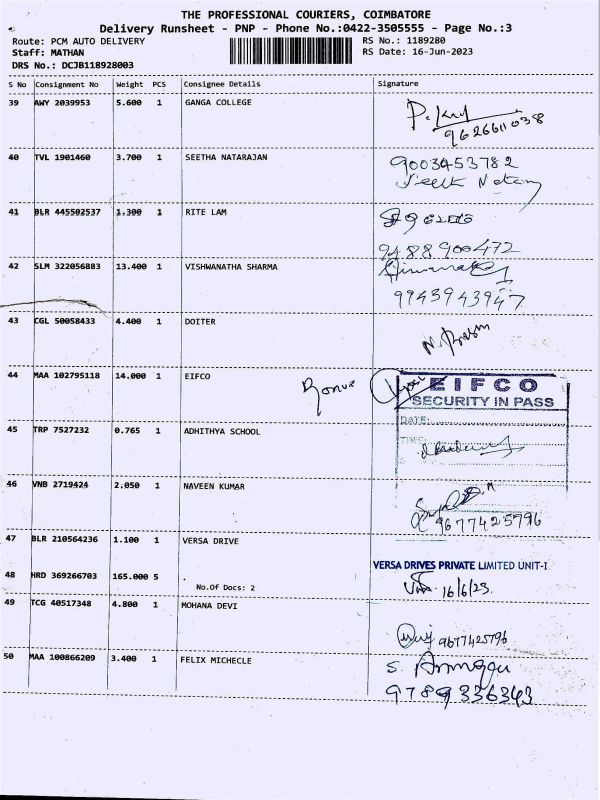 THE PROFESSIONAL COURIERS, COIMBATORE
Delivery Runsheet - PNP - Phone No.:0422-3505555 - Page No.:3
Route: PCM AUTO DELIVERY
RS No.: 1189280
Staff: MATHAN
RS Date: 16-Jun-2023
DRS No.: DCJB118928003
S No Consignment No Weight PCS Consignee Details Signature
39 AWY 2039953 5.600 1 GANGA COLLEGE
9626611038
40 TVL 1901460 3.700 1 SEETHA NATARAJAN
9003453782
41 BLR 445502537 1.300 1 RITE LAM
9488900472
42 SLM 322056883 13.400 1 VISHWANATHA SHARMA
9943943947
43 CGL 50058433 4.400 1 DOITER
44 MAA 102795118 14.000 1 EIFCO
EIFCO
SECURITY IN PASS
DATE:
TIME:
45 TRP 7527232 0.765 1 ADHITHYA SCHOOL
46 VNB 2719424 2.050 1 NAVEEN KUMAR
9677425796
47 BLR 210564236 1.100 1 VERSA DRIVE
VERSA DRIVES PRIVATE LIMITED UNIT-I
48 HRD 369266703 165.000 5
No.Of Docs: 2
16/6/23
49 TCG 40517348 4.800 1 MOHANA DEVI
9677425796
50 MAA 100866209 3.400 1 FELIX MICHECLE
9789336343